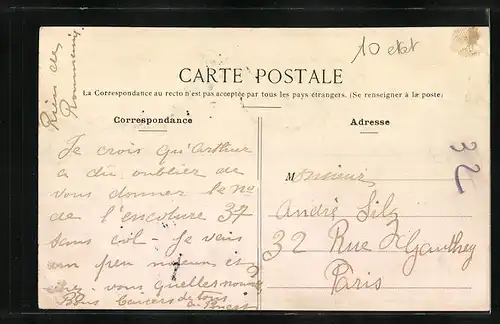 10 état
Rien des
CARTE POSTALE
La Correspondance au recto n'est pas acceptée par tous les pays étrangers. (Se renseigner à la poste)
Correspondance
Adresse
Je crois qu'Arthur
a dû oublier de
vous donner le no
de l'encolure 37
sans col - Je vais
un peu mieux et
vous quelles nouv
Bons baisers de tous
à Brest
Monsieur
André Silz
32 Rue Gauthey
Paris
32